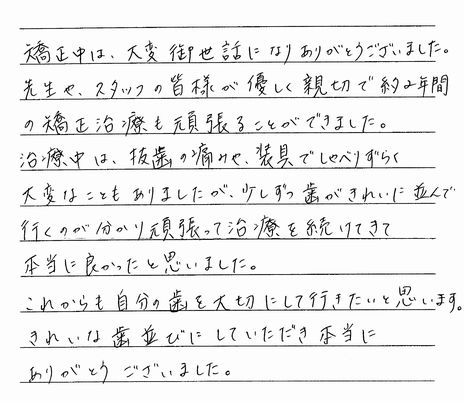 矯正中は、大変御世話になりありがとうございました。
先生や、スタッフの皆様が優しく親切で約2年間
の矯正治療も頑張ることができました。
治療中は、抜歯の痛みや、装具でしゃべりずらく
大変なこともありましたが、少しずつ歯がきれいに並んで
行くのが分かり頑張って治療を続けてきて
本当に良かったと思いました。
これからも自分の歯を大切にして行きたいと思います。
きれいな歯並びにしていただき本当に
ありがとうございました。